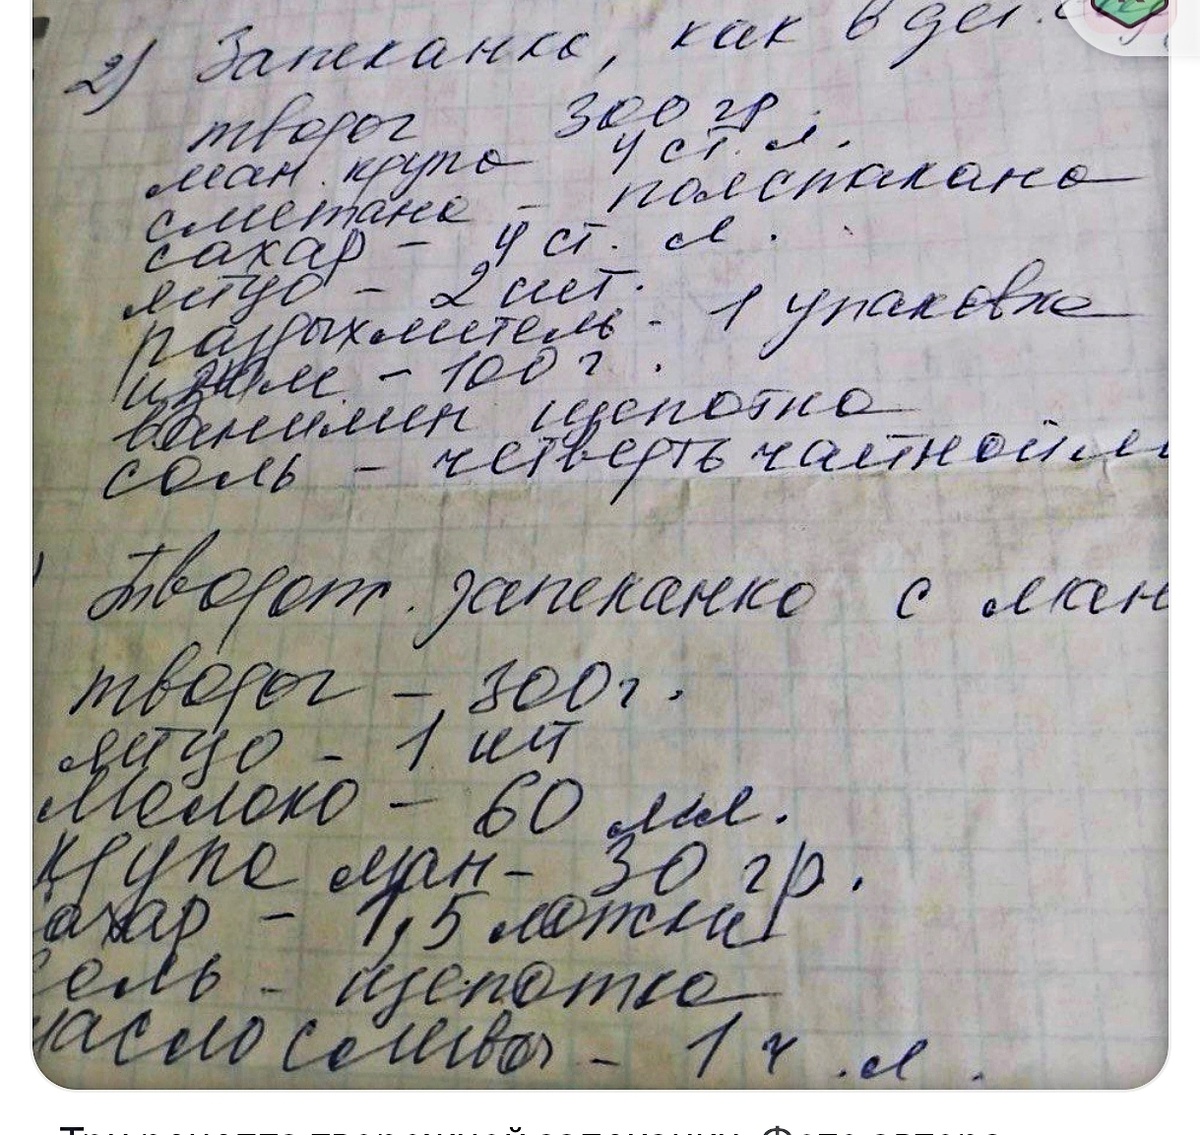 2) Запеканка, как в дет. с
творог 300 гр.
ман. крупа 4 ст. л.
сметана - полстакана
сахар - 4 ст. л.
яйцо - 2 шт.
разрыхлитель - 1 упаковка
изюм - 100 г.
ванилин щепотка
соль - четверть чайной л
) Творож. запеканка с ман
творог - 300 г.
яйцо - 1 шт
молоко - 60 мл.
крупа ман - 30 гр.
ахар - 1,5 ложки
соль - щепотка
масло слив. - 1 ч. л.
Три рецепта творожной запеканки. Фото автора